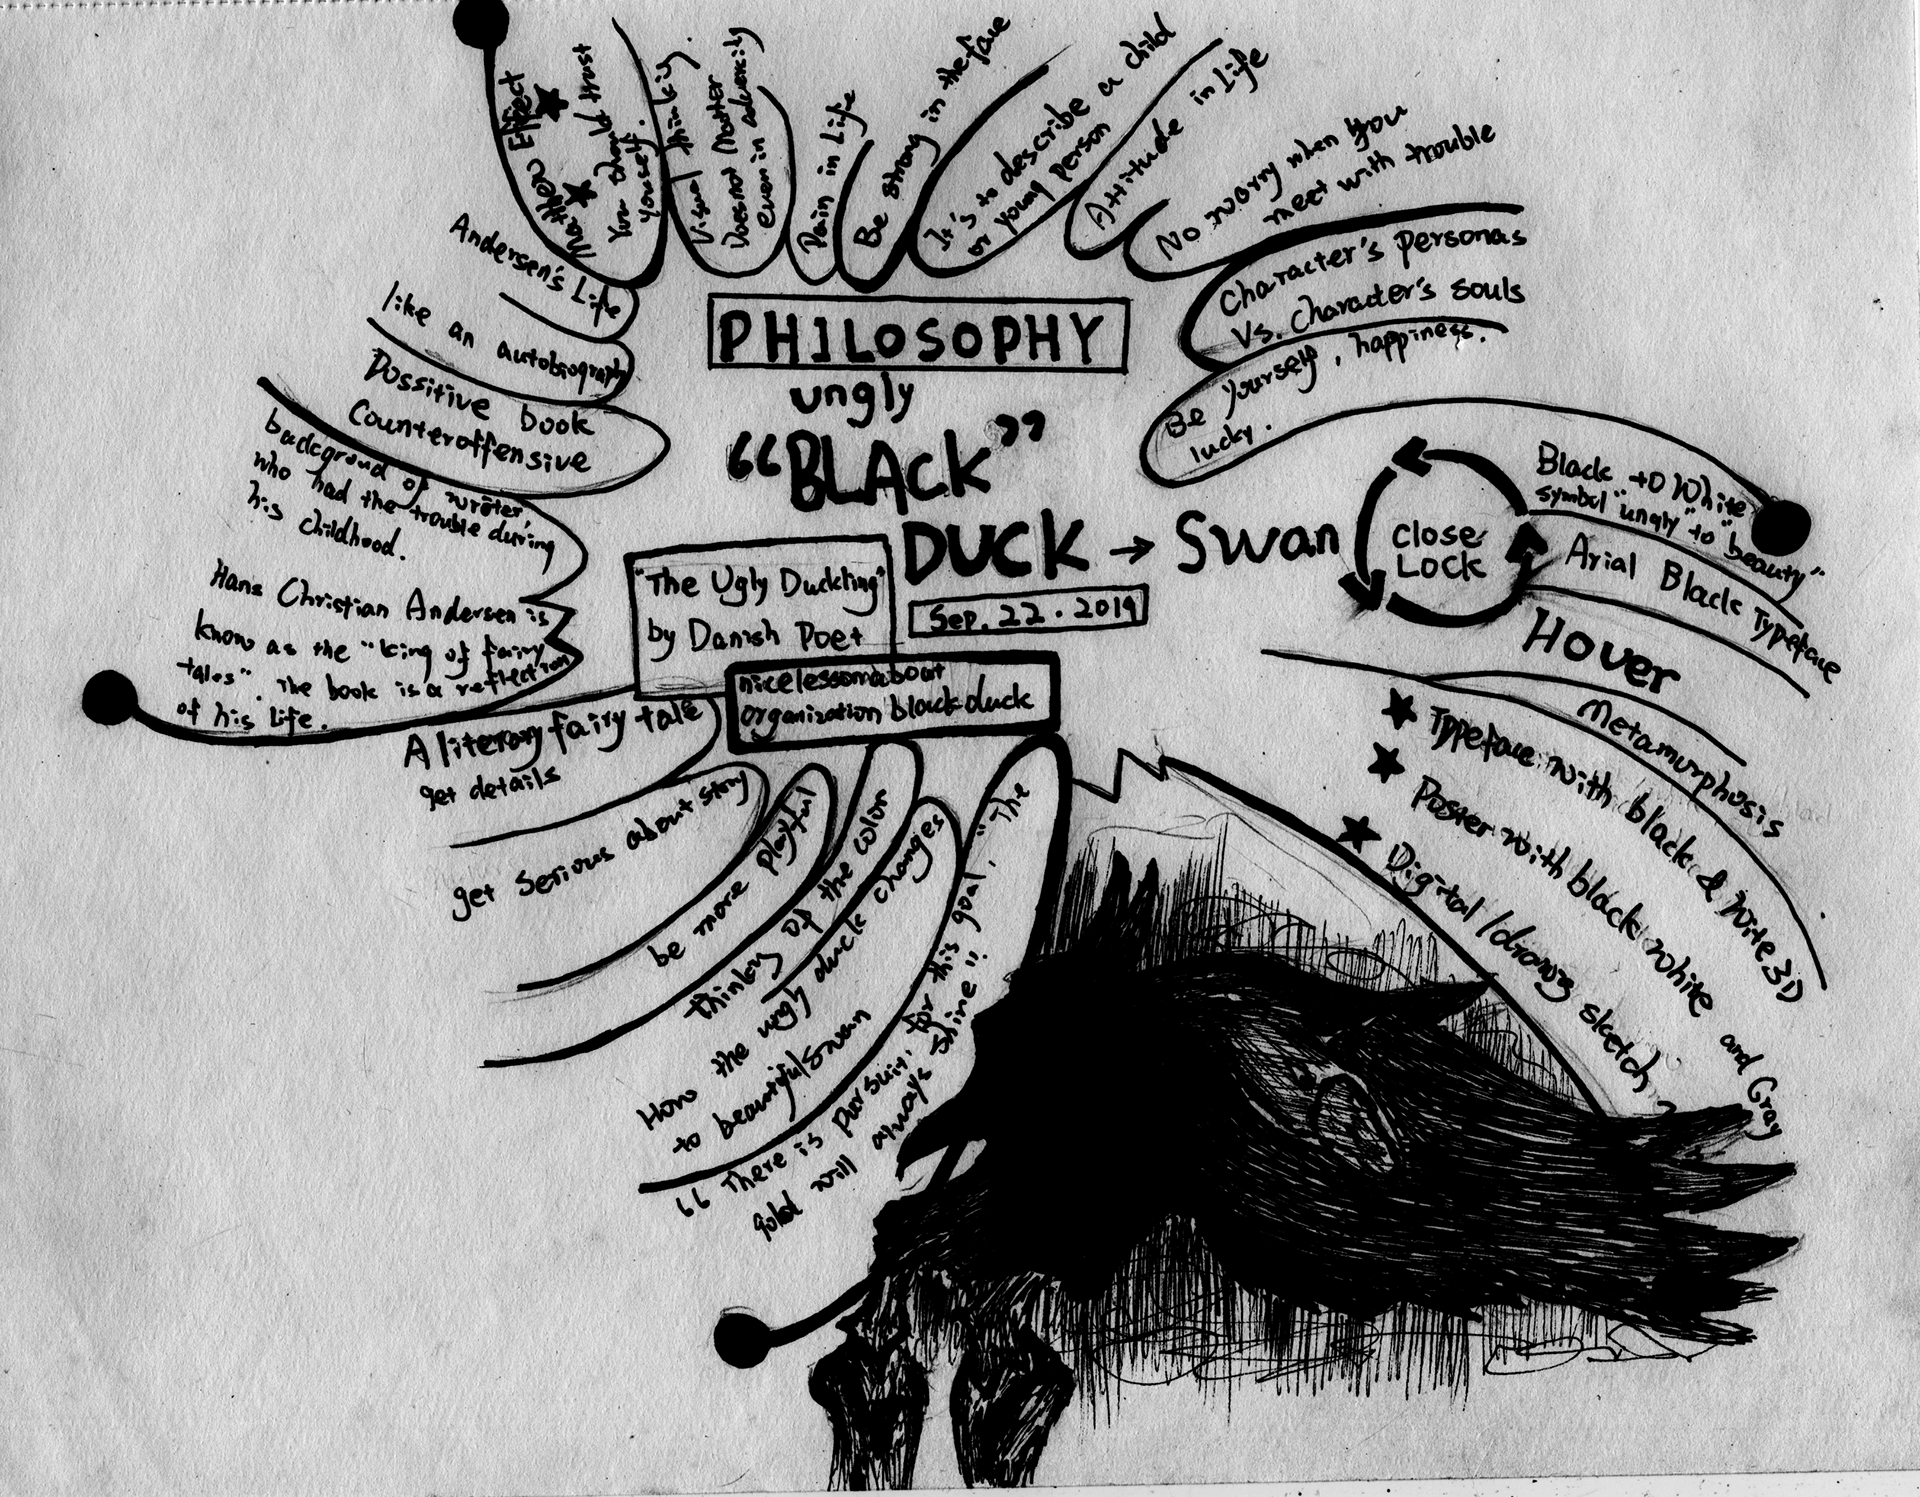 Matthew Effect
You should trust
yourself.
Visual thinking
Does not Matter
even in adversity
Pain in Life
Be strong in the face
It's to describe a child
or young person
Attitude in Life
No worry when you
meet with trouble
Character's personas
Vs. character's souls
Be yourself, happiness.
lucky.
Andersen's Life
like an autobiography
Possitive book
Counteroffensive
background of writer,
who had the trouble during
his childhood.
Hans Christian Andersen is
know as the "king of fairy
tales". The book is a reflection
of his life.
PHILOSOPHY
ungly
"BLACK"
DUCK → Swan
close
LOCK
"The Ugly Duckling"
by Danish Poet
Sep. 22. 2019
nicelessonabout
organization black duck
Black to White
symbol "ungly" to "beauty"
Arial Black Typeface
Hover
Metamurphosis
Typeface with black & write 3D
Poster with black white and Gray
Digital/drawing sketch
A literary fairy tale
get details
get serious about story
be more playful
thinking of the color
How the ungly duck changes
to beautiful swan
"There is pursuit, for this goal, "The
gold will always shine"